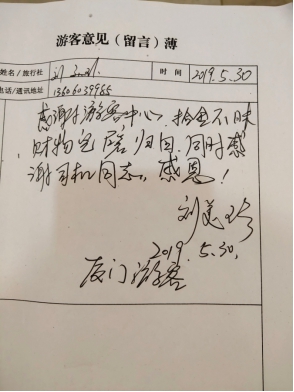 游客意见（留言）薄
姓名/旅行社 时间 2019.5.30
电话/通讯地址 13606039985
感谢游客中心、拾金不昧
财物完璧归回.同时感
谢司机同志，感恩！
刘美珍
2019.5.30.
厦门游客